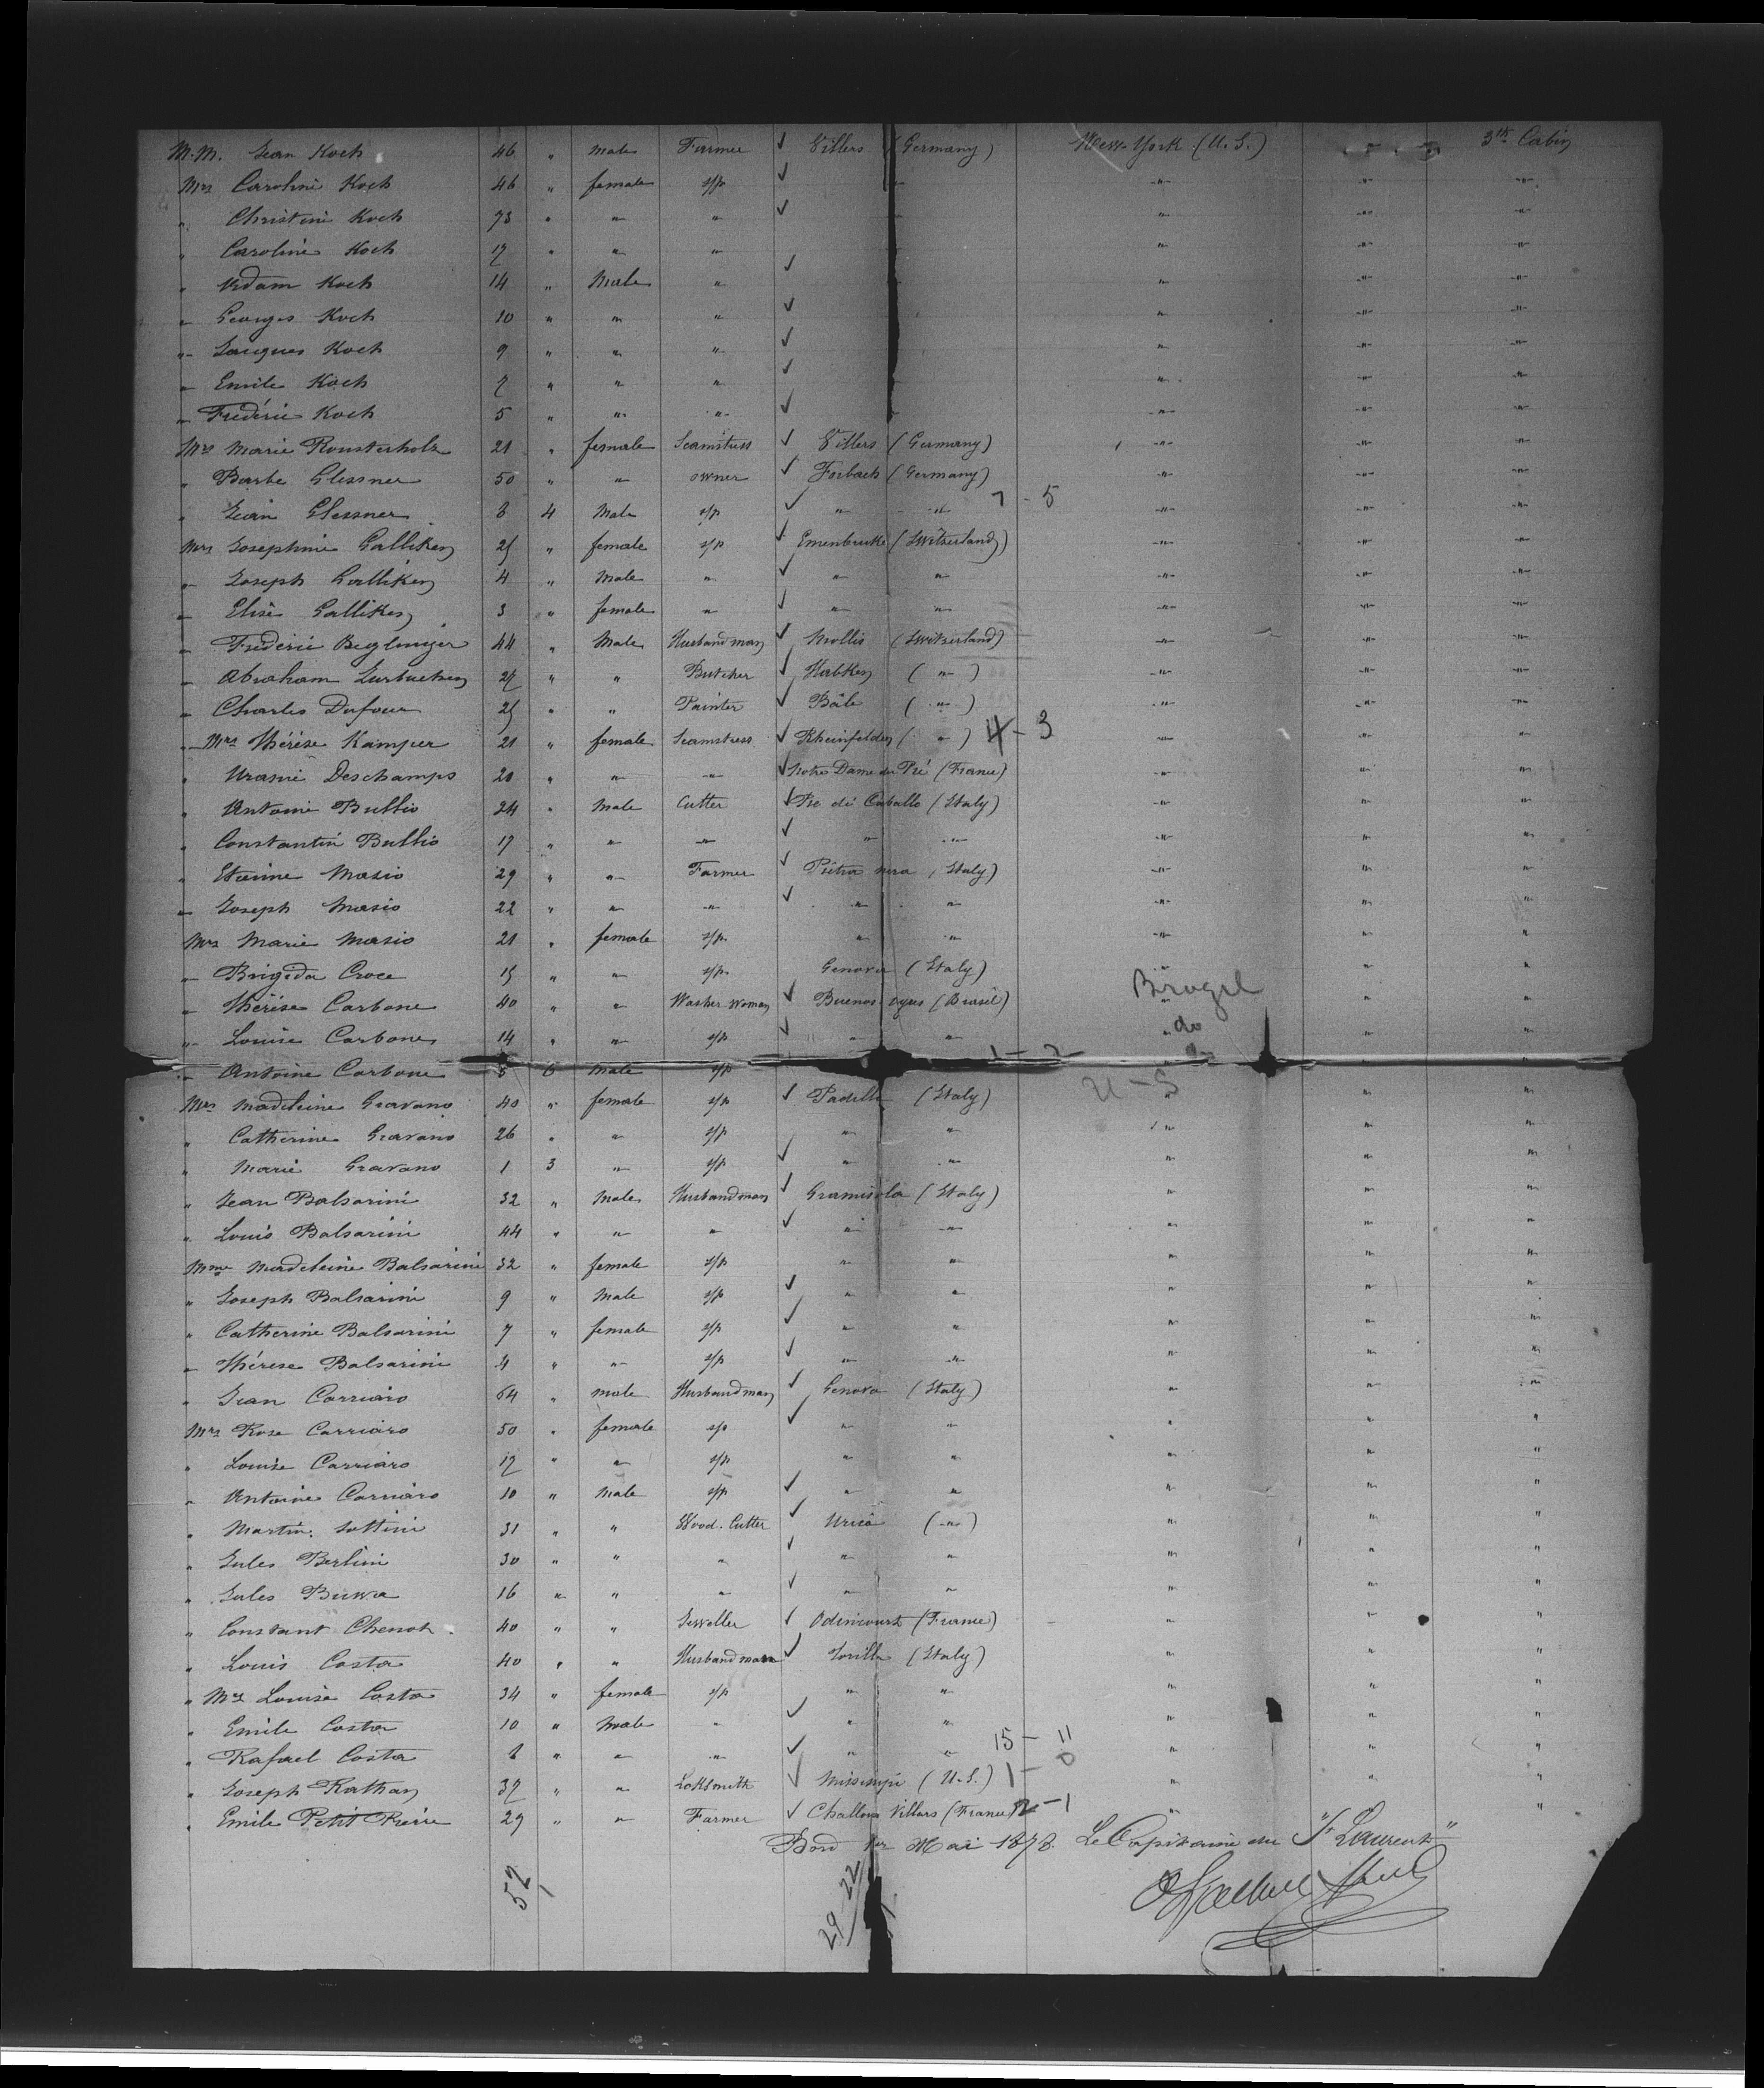 M.M. Jean Koch 46 " Male Farmer ✓ Villers (Germany) New-York (U.S.) 3th Cabin
Mrs Caroline Koch 46 " female s/p ✓ " " "
" Christine Koch 73 " " " ✓ " " "
" Caroline Koch 17 " " " " " "
" Adam Koch 14 " Male " ✓ " " "
" Georges Koch 10 " " " ✓ " " "
" Jacques Koch 9 " " " ✓ " " "
" Emile Koch 7 " " " ✓ " " "
" Fréderic Koch 5 " " " ✓ " " "
Mrs Marie Rousterholz 21 " female Seamstress ✓ Villers (Germany) " " "
" Barbe Glessner 50 " " owner ✓ Forbach (Germany) " " "
" Jean Glessner 8 4 Male s/p ✓ " " 7 - 5 " " "
Mrs Josephine Galliken 25 " female s/p ✓ Emenbrucke (Switzerland) " " "
" Joseph Galliken 4 " Male " ✓ " " " " "
" Elise Galliken 3 " female " ✓ " " " " "
" Fréderic Beglinger 44 " Male Husbandman ✓ Mollis (Switzerland) " " "
" Abraham Zurbuchen 27 " " Butcher ✓ Habken ( " ) " " "
" Charles Dufour 25 " " Painter ✓ Bâle ( " ) " " "
" Mrs Thérèse Kamper 21 " female Seamstress ✓ Rheinfelden ( " ) 4 - 3 " " "
" Uranie Deschamps 20 " " " ✓ Notre Dame du Pré (France) " " "
" Antoine Bullio 24 " Male Cutter ✓ Pre di Caballo (Italy) " " "
" Constantin Bullio 17 " " " ✓ " " " " "
" Etienne Masio 29 " " Farmer ✓ Pietra nera (Italy) " " "
" Joseph Masio 22 " " " ✓ " " " " "
Mrs Marie Masio 21 " female s/p " " " " "
" Brigida Croce 15 " " s/p Genova (Italy) " " "
" Thérèse Carbone 40 " " Washer Woman ✓ Buenos ayres (Brasil) Brazil " "
" Louise Carbone 14 " " s/p ✓ " " do " "
" Antoine Carbone 5 6 Male s/p 1 - 2 " "
Mrs Madeleine Gravano 40 " female s/p ✓ Padella (Italy) U - S " "
" Catherine Gravano 26 " " s/p " " " " "
" Marie Gravano 1 3 " s/p ✓ " " " " "
" Jean Balsarini 32 " Male Husbandman ✓ Gramisola (Italy) " " "
" Louis Balsarini 44 " " " ✓ " " " " "
Mme Madeleine Balsarini 32 " female s/p " " " " "
" Joseph Balsarini 9 " Male s/p ✓ " " " " "
" Catherine Balsarini 7 " female s/p ✓ " " " " "
" Thérèse Balsarini 4 " " s/p ✓ " " " " "
" Jean Carriaro 64 " male Husbandman ✓ Genova (Italy) " " "
Mrs Rose Carriaro 50 " female s/p ✓ " " " " "
" Louise Carriaro 17 " " s/p " " " " "
" Antoine Carriaro 10 " Male s/p ✓ " " " " "
" Martin Sottini 31 " " Wood. Cutter ✓ Urica ( " ) " " "
" Jules Berlini 30 " " " ✓ " " " " "
" Jules Buwa 16 " " " ✓ " " " " "
" Constant Chenot 40 " " Jeweller ✓ Odincourt (France) " " "
" Louis Costa 40 " " Husbandman ✓ Torilla (Italy) " " "
" Mrs Louise Costa 34 " female s/p " " " " "
" Emile Costa 10 " Male " ✓ " " " " "
" Rafael Costa 8 " " " ✓ " " 15 - 11 " " "
" Joseph Rathan 37 " " Locksmith ✓ Missisipi (U.S.) 1 - 0 " " "
" Emile Petit Pierre 29 " " Farmer ✓ Challons Villars (France) 2 - 1 " " "
Bord 1er Mai 1878. Le Capitaine du "St Laurent"
52
29 22